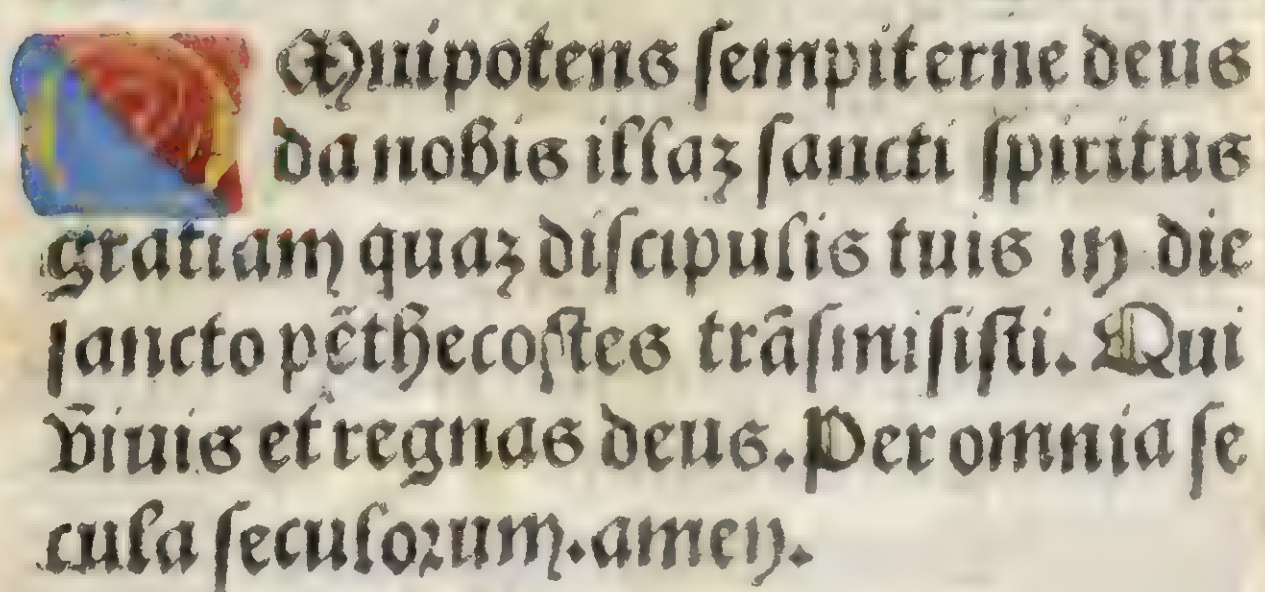 Omnipotens ſempiterne deus
da nobis illaz ſancti ſpiritus
gratiam quaz diſcipulis tuis in die
ſancto pẽthecoſtes trãſmiſiſti. Qui
viuis et regnas deus. Per omnia ſe
cula ſeculoꝛum. amen.